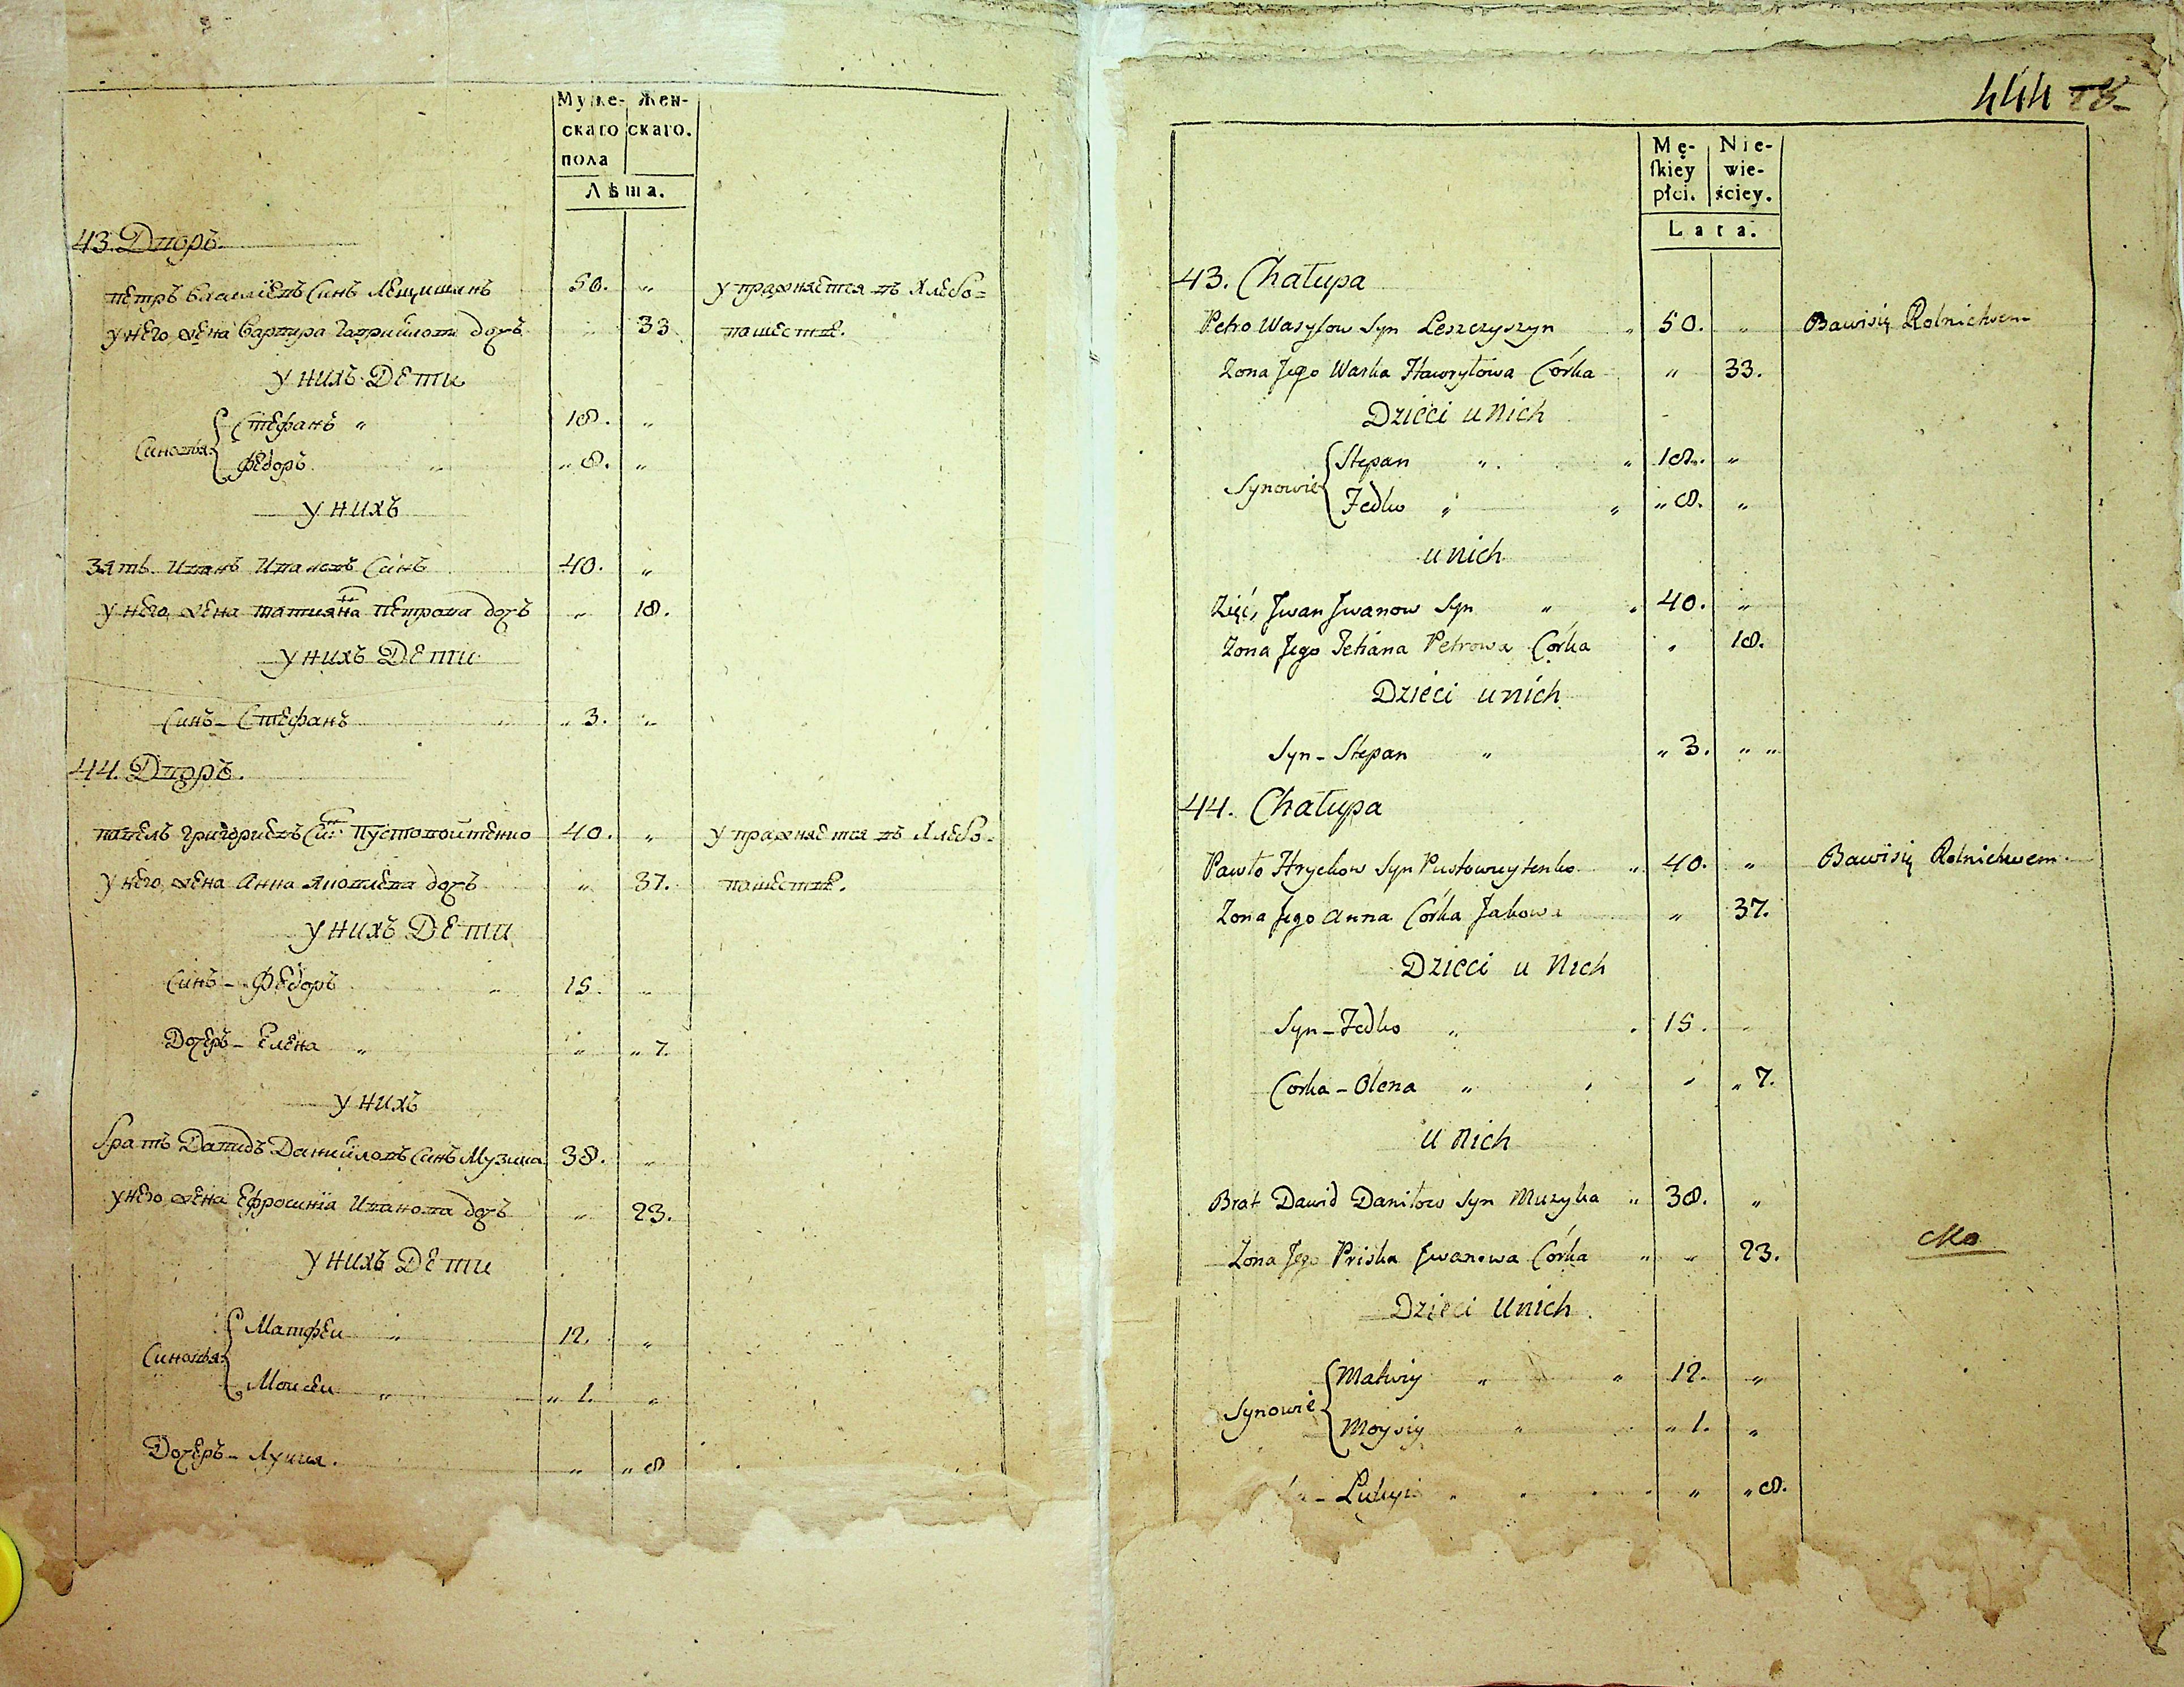 Муже- Жен-
скаго скаго.
пола
Лѣта.
43. Дворъ
Петръ Василiевъ Синъ Лещишинъ 50. „ упражняется въ хлебо=
у него жена Варвара Гавриилова дочь „ 33 пашестве.
у нихъ Дети
Синовья { Стефанъ „ 18. „
Федоръ „ „ 8. „
у нихъ
Зять Иванъ Ивановъ Синъ 40. „
у него жена Татияна Петрова дочь „ 18.
у нихъ Дети
Синъ - Стефанъ „ „ 3. „
44. Дворъ.
Павелъ Григориевъ Си: Пустовойтенко 40. „ упражняется въ хлебо=
у него жена Анна Яковлева дочь „ 37. пашестве.
у нихъ Дети
Синъ - Федоръ „ 15. „
Дочеръ - Елена „ „ „ 7.
у нихъ
братъ Давидъ Данииловъ Синъ Музика 38. „
у него жена Ефросинiя Иванова дочь „ 23.
у нихъ Дети
Синовья { Матфеи „ 12. „
Моисеи „ „ 1. „
Дочеръ - Лукия. „ „ 8
444 28
Mę- Nie-
ſkiey wie-
płci. ściey.
Lata.
43. Chałupa
Petro Wasylow Syn Leszczyszyn „ 50. „ Bawisię Rolnictwem
Zona Jego Warka Hawryłowa Córka „ 33.
Dzieci u Nich
Synowie { Stepan „ „ 18. „
Fedko „ „ „ 8. „
u nich
Zięć, Jwan Jwanow Syn „ „ 40. „
Zona Jego Tetiana Petrowa Córka „ 18.
Dzieci u nich
Syn - Stepan „ „ 3. „ „
44. Chałupa
Pawło Hryckow Syn Pustowoytenko „ 40. „ Bawisię Rolnictwem
Zona Jego Anna Córka Jakowa „ 37.
Dzieci u Nich
Syn - Fedko „ „ 15. „
Corka - Olena „ „ „ „ 7.
u Nich
Brat Dawid Daniłow Syn Muzyka „ 38. „
Zona Jego Priska Jwanowa Córka „ „ 23.
Dzieci Unich
Synowie { Matwiy „ „ 12. „
Moysiy „ „ 1. „
- Lukyia „ „ „ 8.